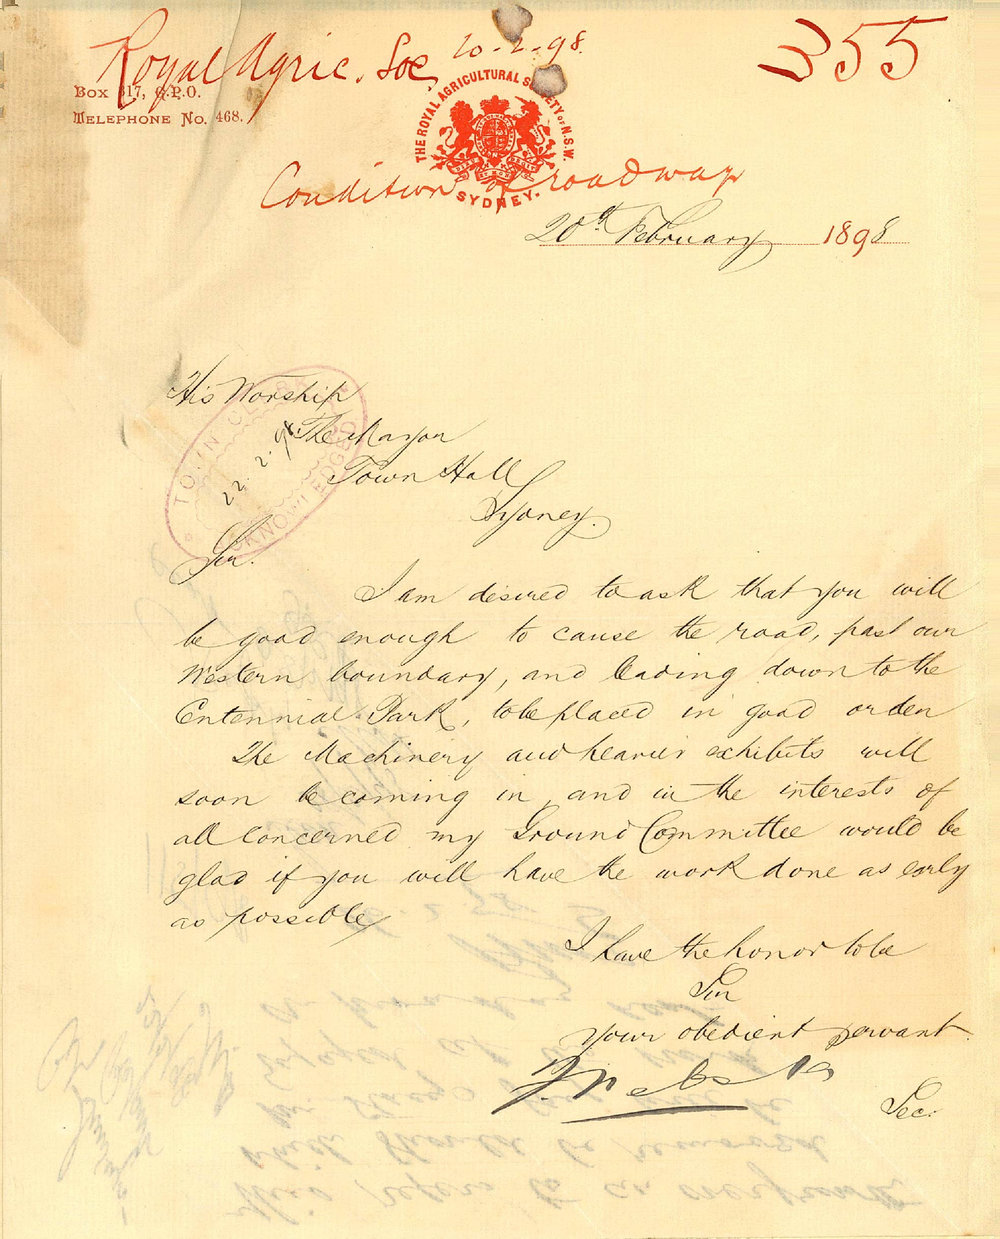 Royal Agric. Soc. 20-2-98.
355
Box 317, G.P.O.
Telephone No. 468.
THE ROYAL AGRICULTURAL SOCIETY OF N.S.W.
SYDNEY.
Condition of roadway
20th February 1898
His Worship
The Mayor
Town Hall
Sydney.
TOWN CLERK
22.2.98
ACKNOWLEDGED
Sir.
I am desired to ask that you will
be good enough to cause the road, past our
Western boundary, and leading down to the
Centennial Park, to be placed in good order
The Machinery and heavier exhibits will
soon be coming in, and in the interests of
all concerned my Ground Committee would be
glad if you will have the work done as early
as possible
I have the honor to be
Sir
Your obedient servant.
F. Webster
Sec.